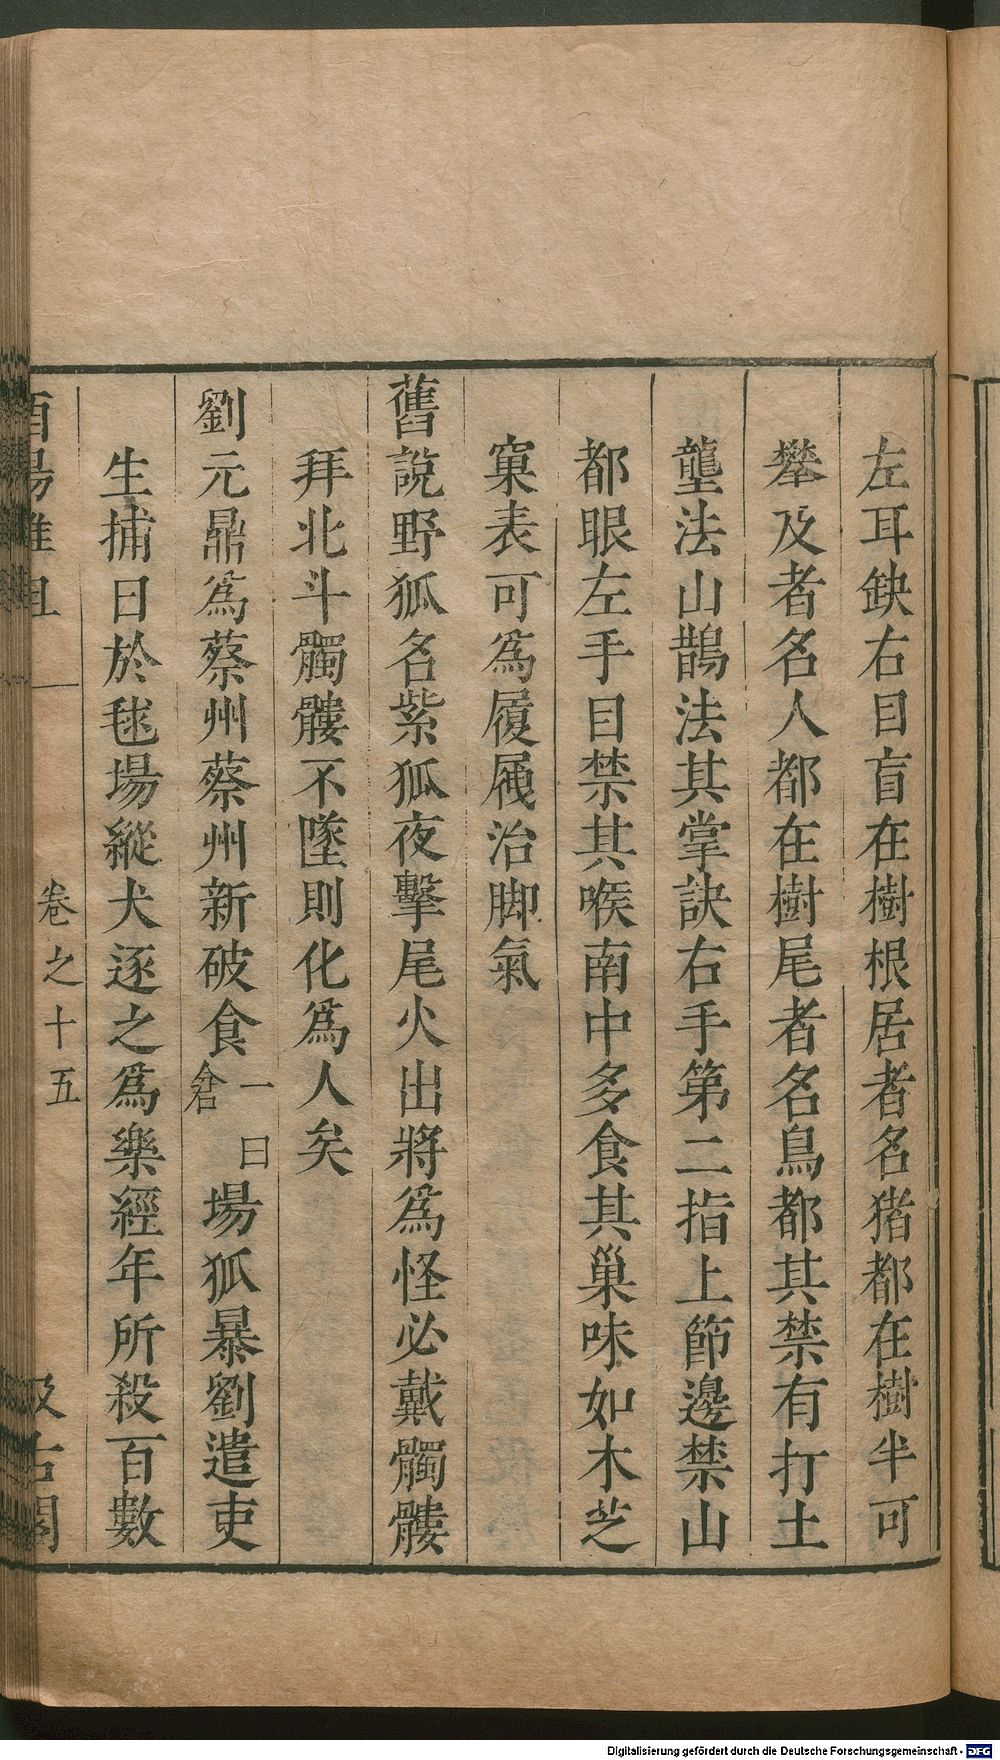 左耳缺右目盲在樹根居者名猪都在樹半可
攀及者名人都在樹尾者名鳥都其禁有打土
壟法山鵲法其掌訣右手第二指上節邊禁山
都眼左手目禁其喉南中多食其巢味如木芝
窠表可為履屧治脚氣
舊說野狐名紫狐夜擊尾火出將為怪必戴髑髏
拜北斗髑髏不墜則化為人矣
劉元鼎為蔡州蔡州新破食一曰倉場狐暴劉遣吏
生捕日於毬場縱犬逐之為樂經年所殺百數
酉陽雜俎 卷之十五 汲古閣
Digitalisierung gefördert durch die Deutsche Forschungsgemeinschaft - DFG